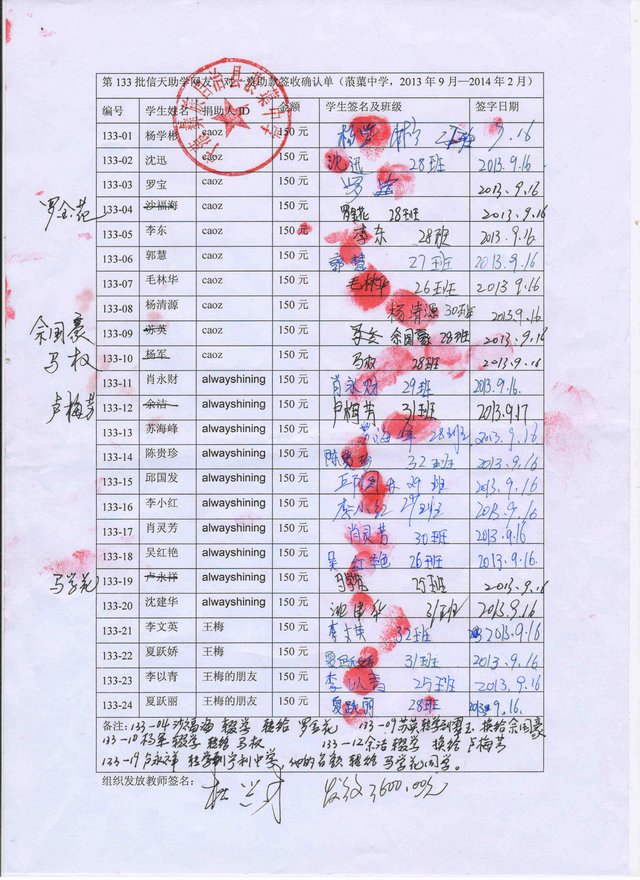 第 133 批信天助学网友一对一资助款签收确认单（蒗蕖中学，2013 年 9 月—2014 年 2 月）
编号 学生姓名 捐助人 ID 金额 学生签名及班级 签字日期
133-01 杨学彬 caoz 150 元 9.16
133-02 沈迅 caoz 150 元 沈迅 28班 2013.9.16
133-03 罗宝 caoz 150 元 罗宝 2013.9.16
罗金花 133-04 沙福海 caoz 150 元 罗金花 28班 2013.9.16
133-05 李东 caoz 150 元 李东 28班 2013.9.16.
133-06 郭慧 caoz 150 元 郭慧 27班 2013.9.16
133-07 毛林华 caoz 150 元 毛林华 26班 2013.9.16
133-08 杨清源 caoz 150 元 杨清源 30班 2013.9.16
余国豪 133-09 苏英 caoz 150 元 余国豪 28班 2013.9.16
马权 133-10 杨军 caoz 150 元 马权 28班 2013.9.16
133-11 肖永财 alwayshining 150 元 肖永财 29班 2013.9.16.
卢梅芳 133-12 余洁 alwayshining 150 元 卢梅芳 31班 2013.9.17
133-13 苏海峰 alwayshining 150 元 28班 2013.9.16
133-14 陈贵珍 alwayshining 150 元 陈贵珍 32班 2013.9.16.
133-15 邱国发 alwayshining 150 元 29班 2013.9.16
133-16 李小红 alwayshining 150 元 李小红 29班 2013.9.16
133-17 肖灵芳 alwayshining 150 元 肖灵芳 30班 2013.9.16
133-18 吴红艳 alwayshining 150 元 吴红艳 26班 2013.9.16
马学花 133-19 卢永祥 alwayshining 150 元 25班 2013.9.16
133-20 沈建华 alwayshining 150 元 沈建华 31班 2013.9.16
133-21 李文英 王梅 150 元 李文英 32班 2013.9.16
133-22 夏跃娇 王梅 150 元 夏跃娇 31班 2013.9.16
133-23 李以青 王梅的朋友 150 元 李以青 25班 2013.9.16
133-24 夏跃丽 王梅的朋友 150 元 夏跃丽 28班 2013.9.16
备注：133-04沙福海 辍学 转给 罗金花 133-09苏英转学到 换给余国豪
133-10杨军 辍学 转给 马权 133-12余洁 辍学 换给 卢梅芳
133-19卢永祥 转学到宁利中学，他的名额 转给 马学花同学。
组织发放教师签名： 发放3600.00元